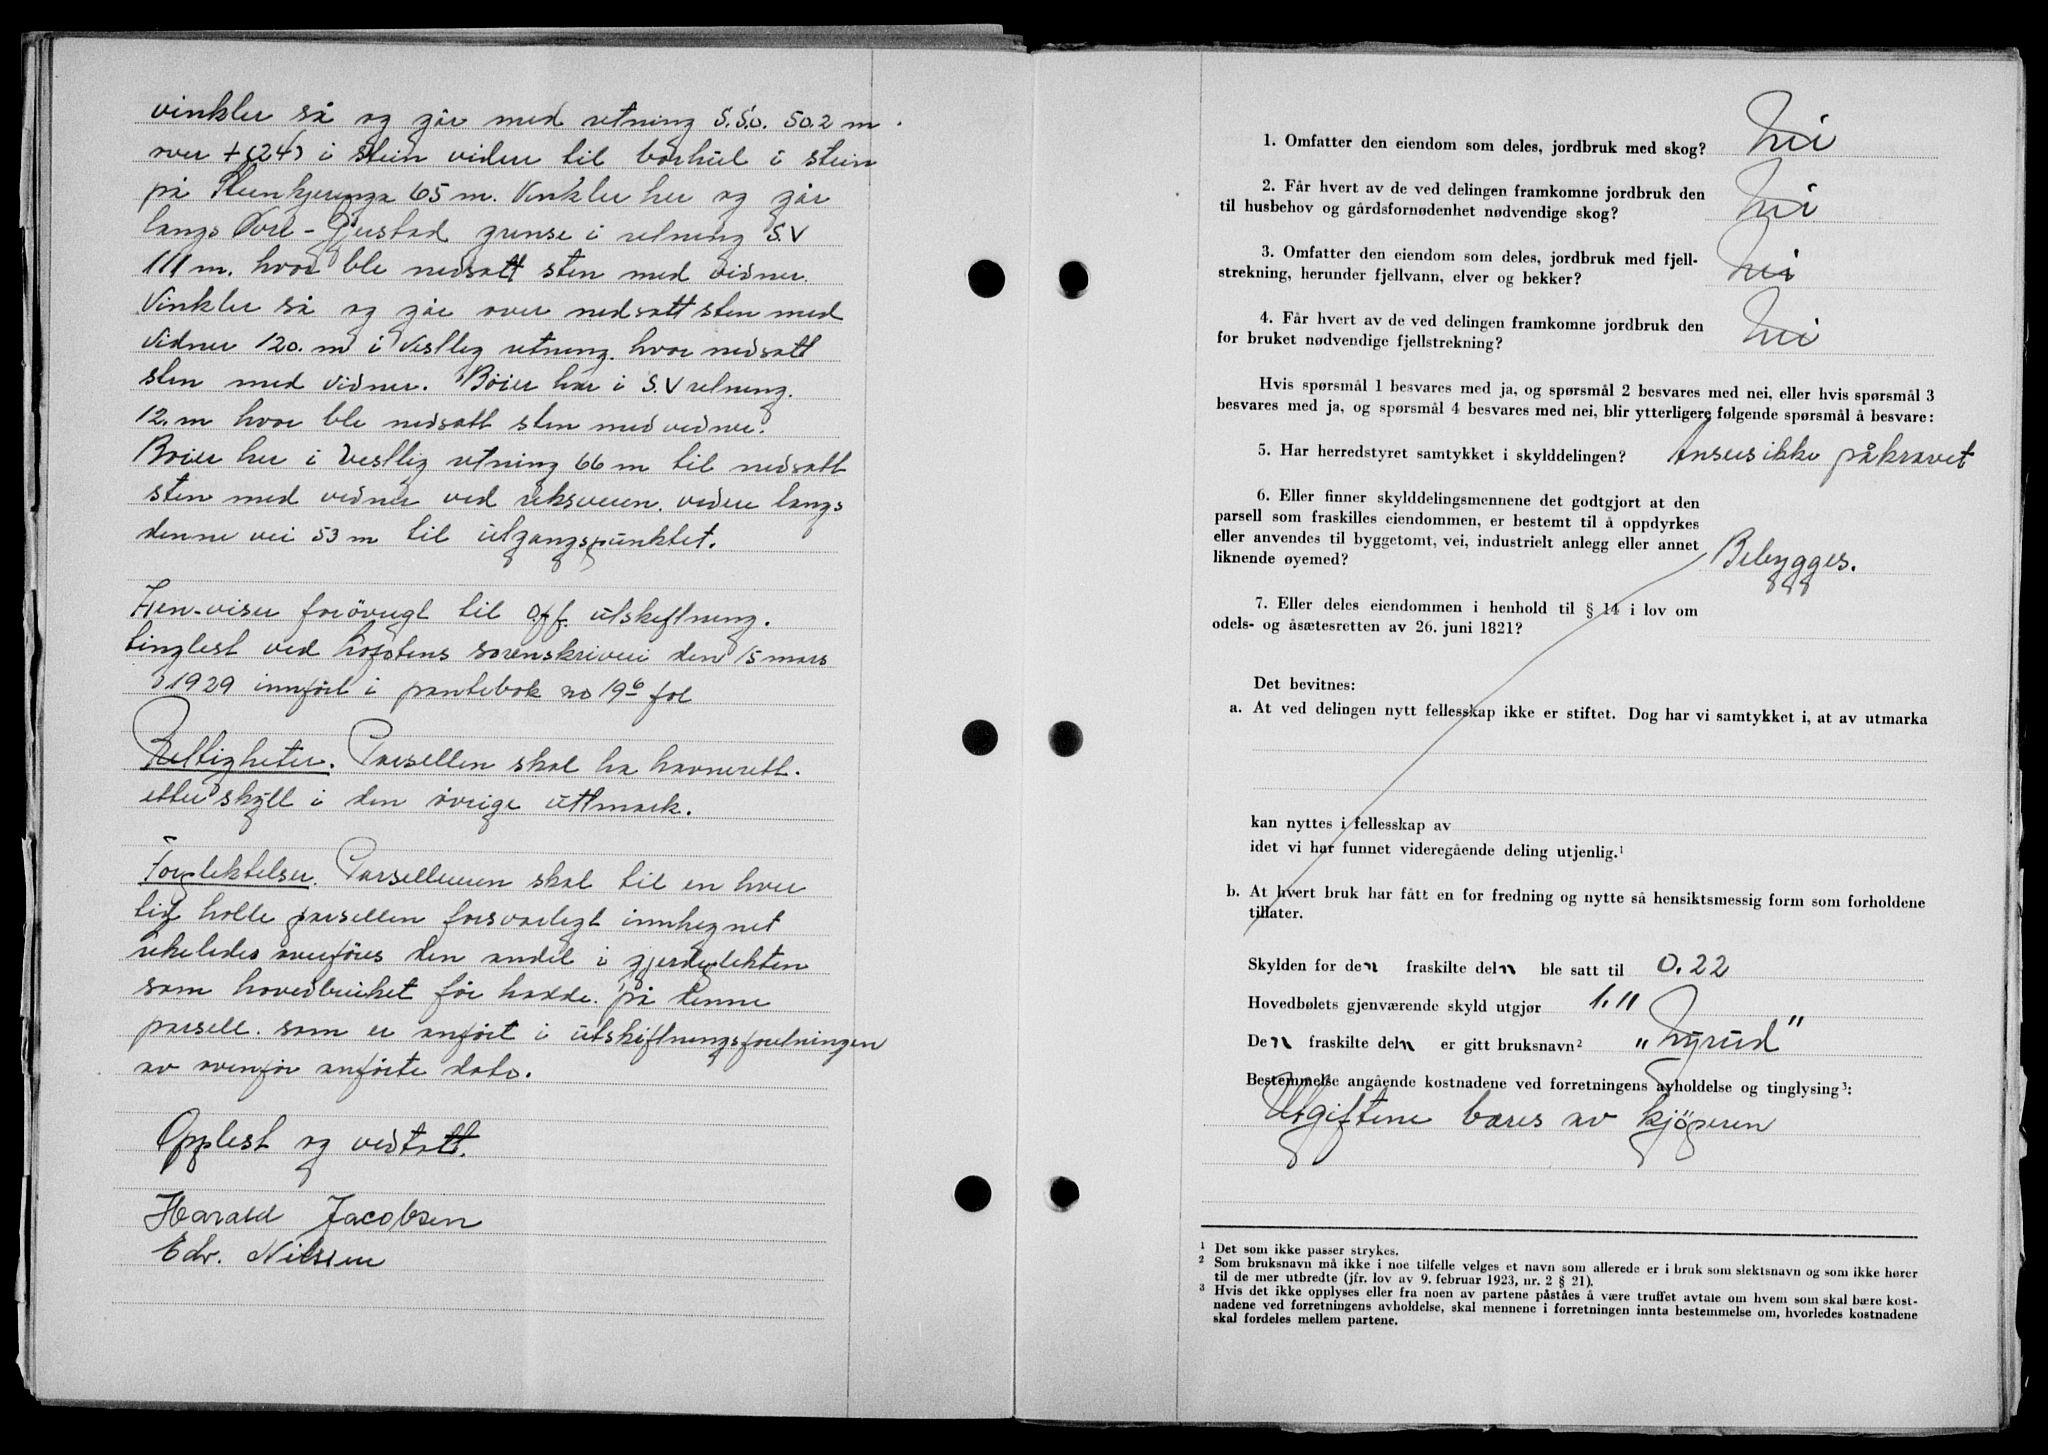 vinkler så og går med retning S.S.O. 50.2 m.
over + (24) i stein videre til borhul i stein
på 65 m. Vinkler her og går
langs Øvre-Gjerstad grense i retning S.V
111 m. hvor ble nedsatt sten med vidner.
Vinkler så og går over nedsatt sten med
vidner 120. m i Vestlig retning. hvor nedsatt
sten med vidner. Böier her i S.V retning.
12. m hvor ble nedsatt sten med vidner.
Böier her i Vestlig retning 66 m til nedsatt
sten med vidner ved riksveien. videre langs
denne vei 53 m til utgangspunktet.
Hen-viser forövrigt til off. utskiftning.
tinglest ved Lofotens sorenskriveri den 15 mars
1929 innfört i pantebok no 19⁶ fol
Rettigheter. Parsellen skal ha havnerett.
etter skyll i den övrige uttmark.
Forplektelser. Parselleieren skal til en hver
tid holle parsellen forsvarligt innhegnet
likeledes overföres den andel i gjerdeplekten
som hovedbruket för hadde. på denne
parsell. som er anfört i utskiftningsforetningen
av ovenfor anförte dato.
Opplest og vedtatt.
Harald Jacobsen
Edv. Nilssen
1. Omfatter den eiendom som deles, jordbruk med skog? Nei
2. Får hvert av de ved delingen framkomne jordbruk den
til husbehov og gårdsfornødenhet nødvendige skog? Nei
3. Omfatter den eiendom som deles, jordbruk med fjell-
strekning, herunder fjellvann, elver og bekker? Nei
4. Får hvert av de ved delingen framkomne jordbruk den
for bruket nødvendige fjellstrekning? Nei
Hvis spørsmål 1 besvares med ja, og spørsmål 2 besvares med nei, eller hvis spørsmål 3
besvares med ja, og spørsmål 4 besvares med nei, blir ytterligere følgende spørsmål å besvare:
5. Har herredstyret samtykket i skylddelingen? Anseesikke påkrævet
6. Eller finner skylddelingsmennene det godtgjort at den
parsell som fraskilles eiendommen, er bestemt til å oppdyrkes
eller anvendes til byggetomt, vei, industrielt anlegg eller annet
liknende øyemed? Bebygges.
7. Eller deles eiendommen i henhold til § 14 i lov om
odels- og åsætesretten av 26. juni 1821?
Det bevitnes:
a. At ved delingen nytt fellesskap ikke er stiftet. Dog har vi samtykket i, at av utmarka
kan nyttes i fellesskap av
idet vi har funnet videregående deling utjenlig.¹
b. At hvert bruk har fått en for fredning og nytte så hensiktsmessig form som forholdene
tillater.
Skylden for den fraskilte deln ble satt til 0.22
Hovedbølets gjenværende skyld utgjør 1.11
Den fraskilte deln er gitt bruksnavn² „Nyrud”
Bestemmelse angående kostnadene ved forretningens avholdelse og tinglysing³:
Utgiftene bæres av kjöperen
¹ Det som ikke passer strykes.
² Som bruksnavn må ikke i noe tilfelle velges et navn som allerede er i bruk som slektsnavn og som ikke hører
til de mer utbredte (jfr. lov av 9. februar 1923, nr. 2 § 21).
³ Hvis det ikke opplyses eller fra noen av partene påståes å være truffet avtale om hvem som skal bære kost-
nadene ved forretningens avholdelse, skal mennene i forretningen innta bestemmelse om, hvorledes kostnadene
skal fordeles mellem partene.